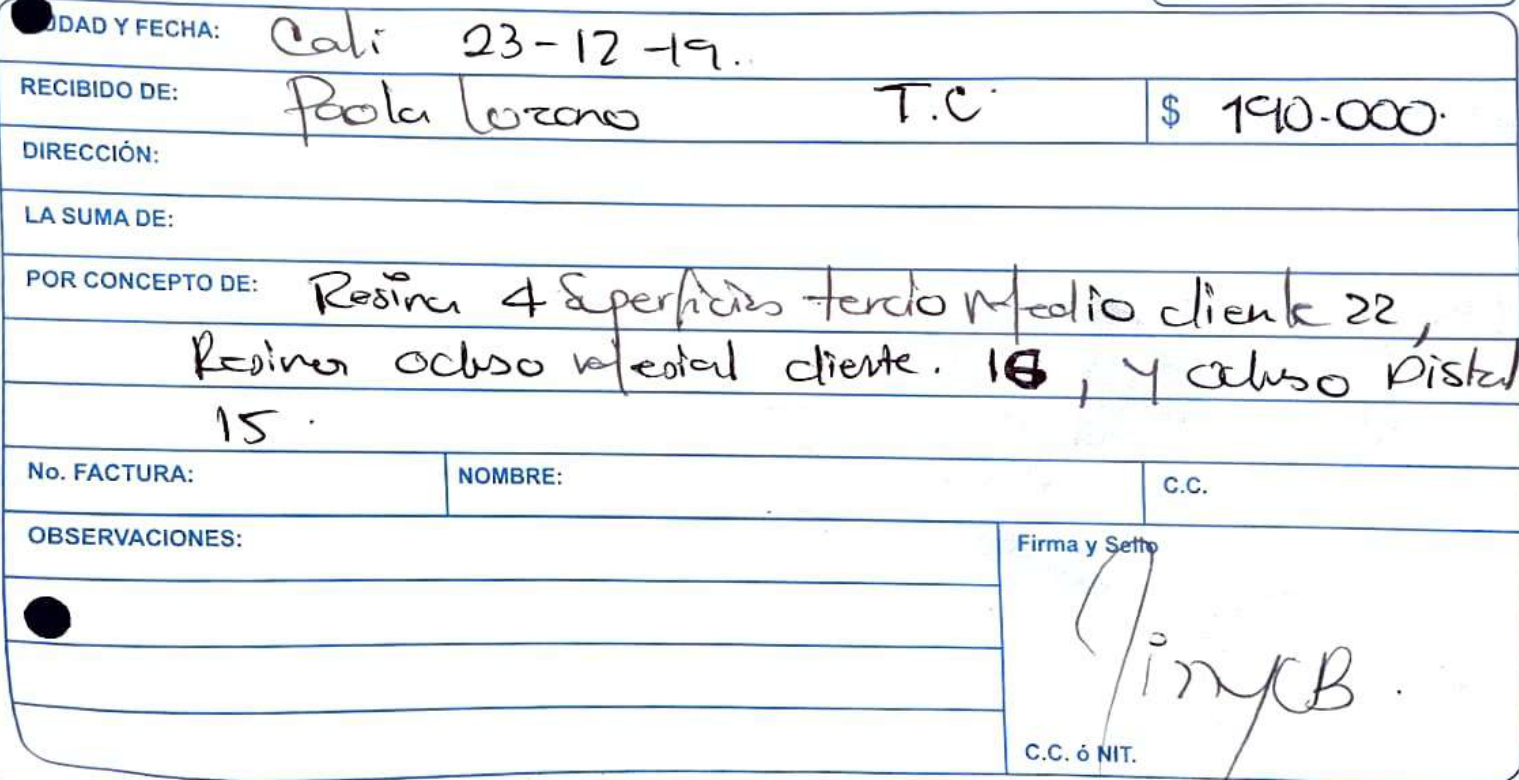 UDAD Y FECHA: Cali 23-12-19.
RECIBIDO DE: Paola Lozano T.C. $ 190.000.
DIRECCIÓN:
LA SUMA DE:
POR CONCEPTO DE: Resina 4 Superficies tercio Medio diente 22,
Resina ocluso Mesial diente. 16, y ocluso Distal
15.
No. FACTURA: NOMBRE: C.C.
OBSERVACIONES: Firma y Sello
C.C. ó NIT.